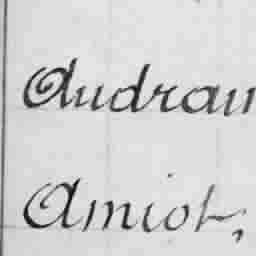 Audran
Amiot,